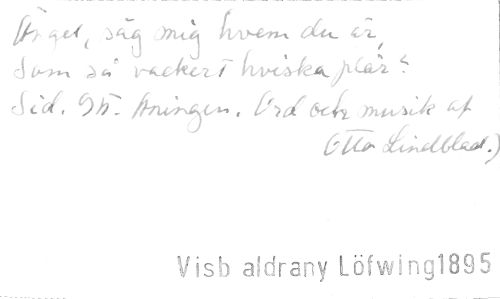 Ängel, säg mig hvem du är,
Som så vackert hviska plär?
Sid. 95. Aningen. Ord och musik af
Otto Lindblad.)
Visb aldrany Löfwing1895